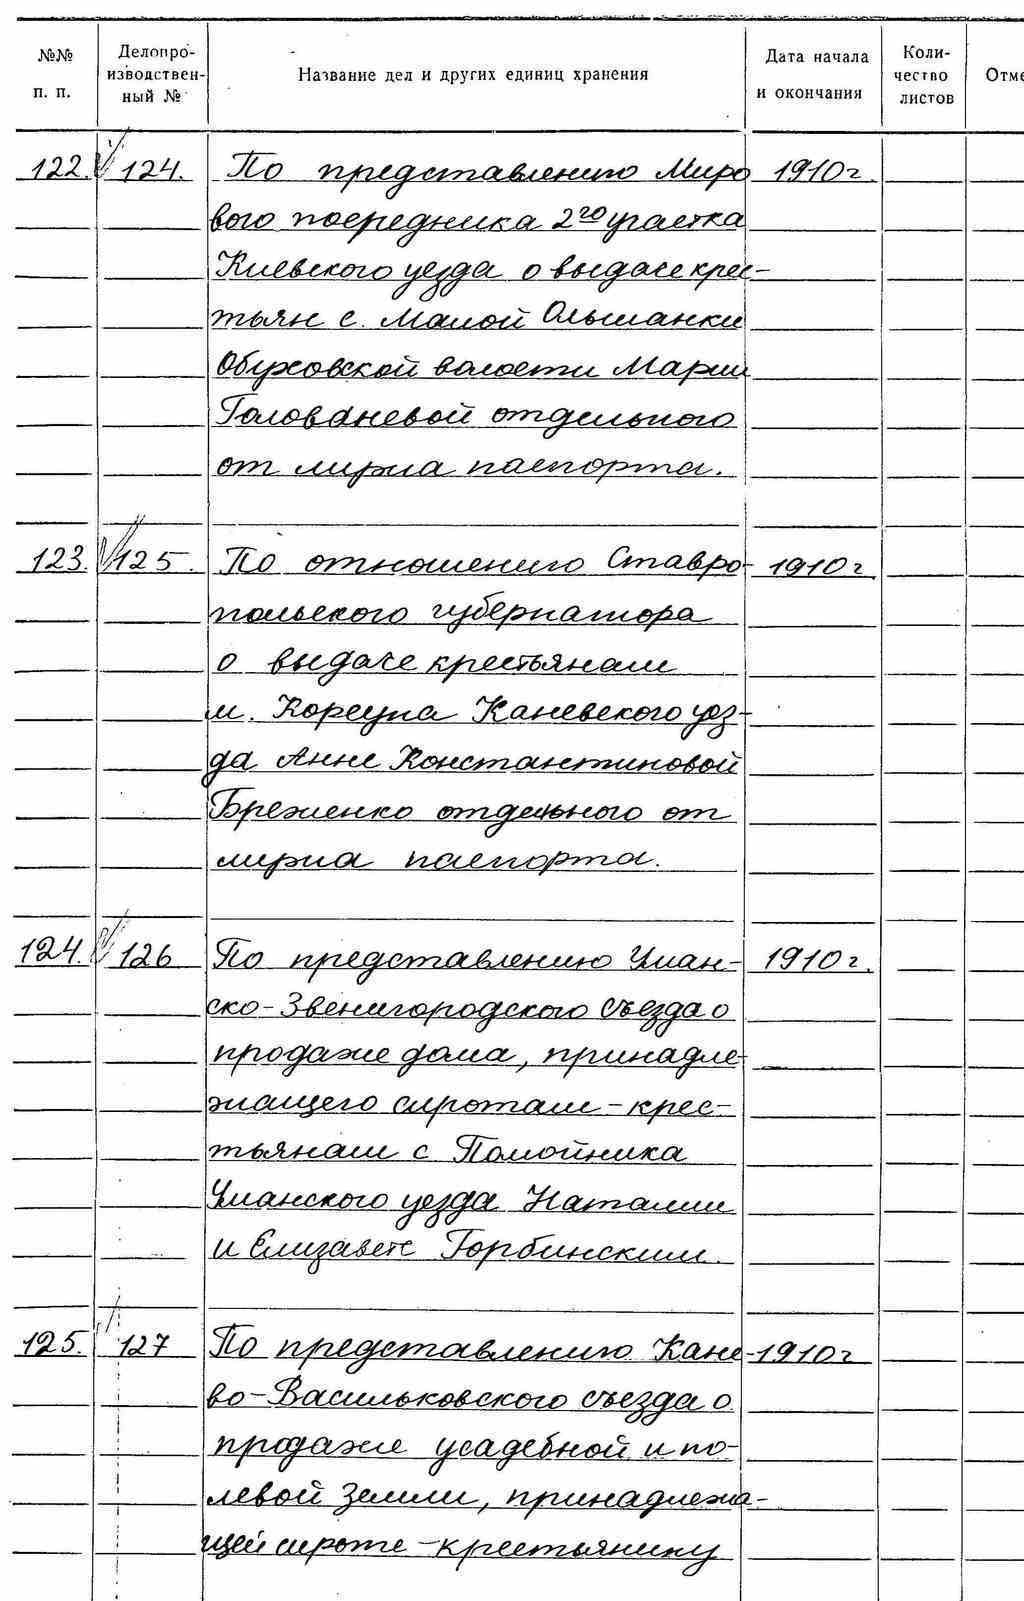 №№ п. п.
Делопро-
изводствен-
ный №
Название дел и других единиц хранения
Дата начала
и окончания
Коли-
чество
листов
Отме
122. 124. По представлению Миро 1910 г.
вого посредника 2го участка
Киевского уезда о выдаче крес-
тьян с. Малой Ольшанки
Обуховской волости Марии
Голованевой отдельного
от мужа паспорта.
123. 125. По отношению Ставро- 1910 г.
польского губернатора
о выдаче крестьянам
м. Корсуна Каневского уез-
да Анне Константиновой
Бреженко отдельного от
мужа паспорта.
124. 126 По представлению Уман- 1910 г.
ско-Звенигородского съезда о
продаже дома, принадле-
жащего сиротам-крес-
тьянам с Помойника
Уманского уезда Наталии
и Елизавете Горбинским.
125. 127 По представлению Кане- 1910 г
во-Васильковского съезда о
продаже усадебной и по-
левой земли, принадлежа-
щей сироте-крестьянину